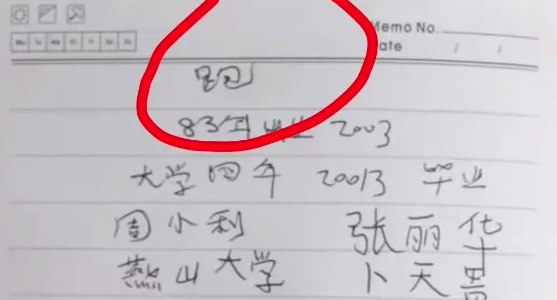 Memo No.
Date / /
跑
83年毕业 2003
大学四年 20013 毕业
周小利 张丽华
燕山大学 卜天景